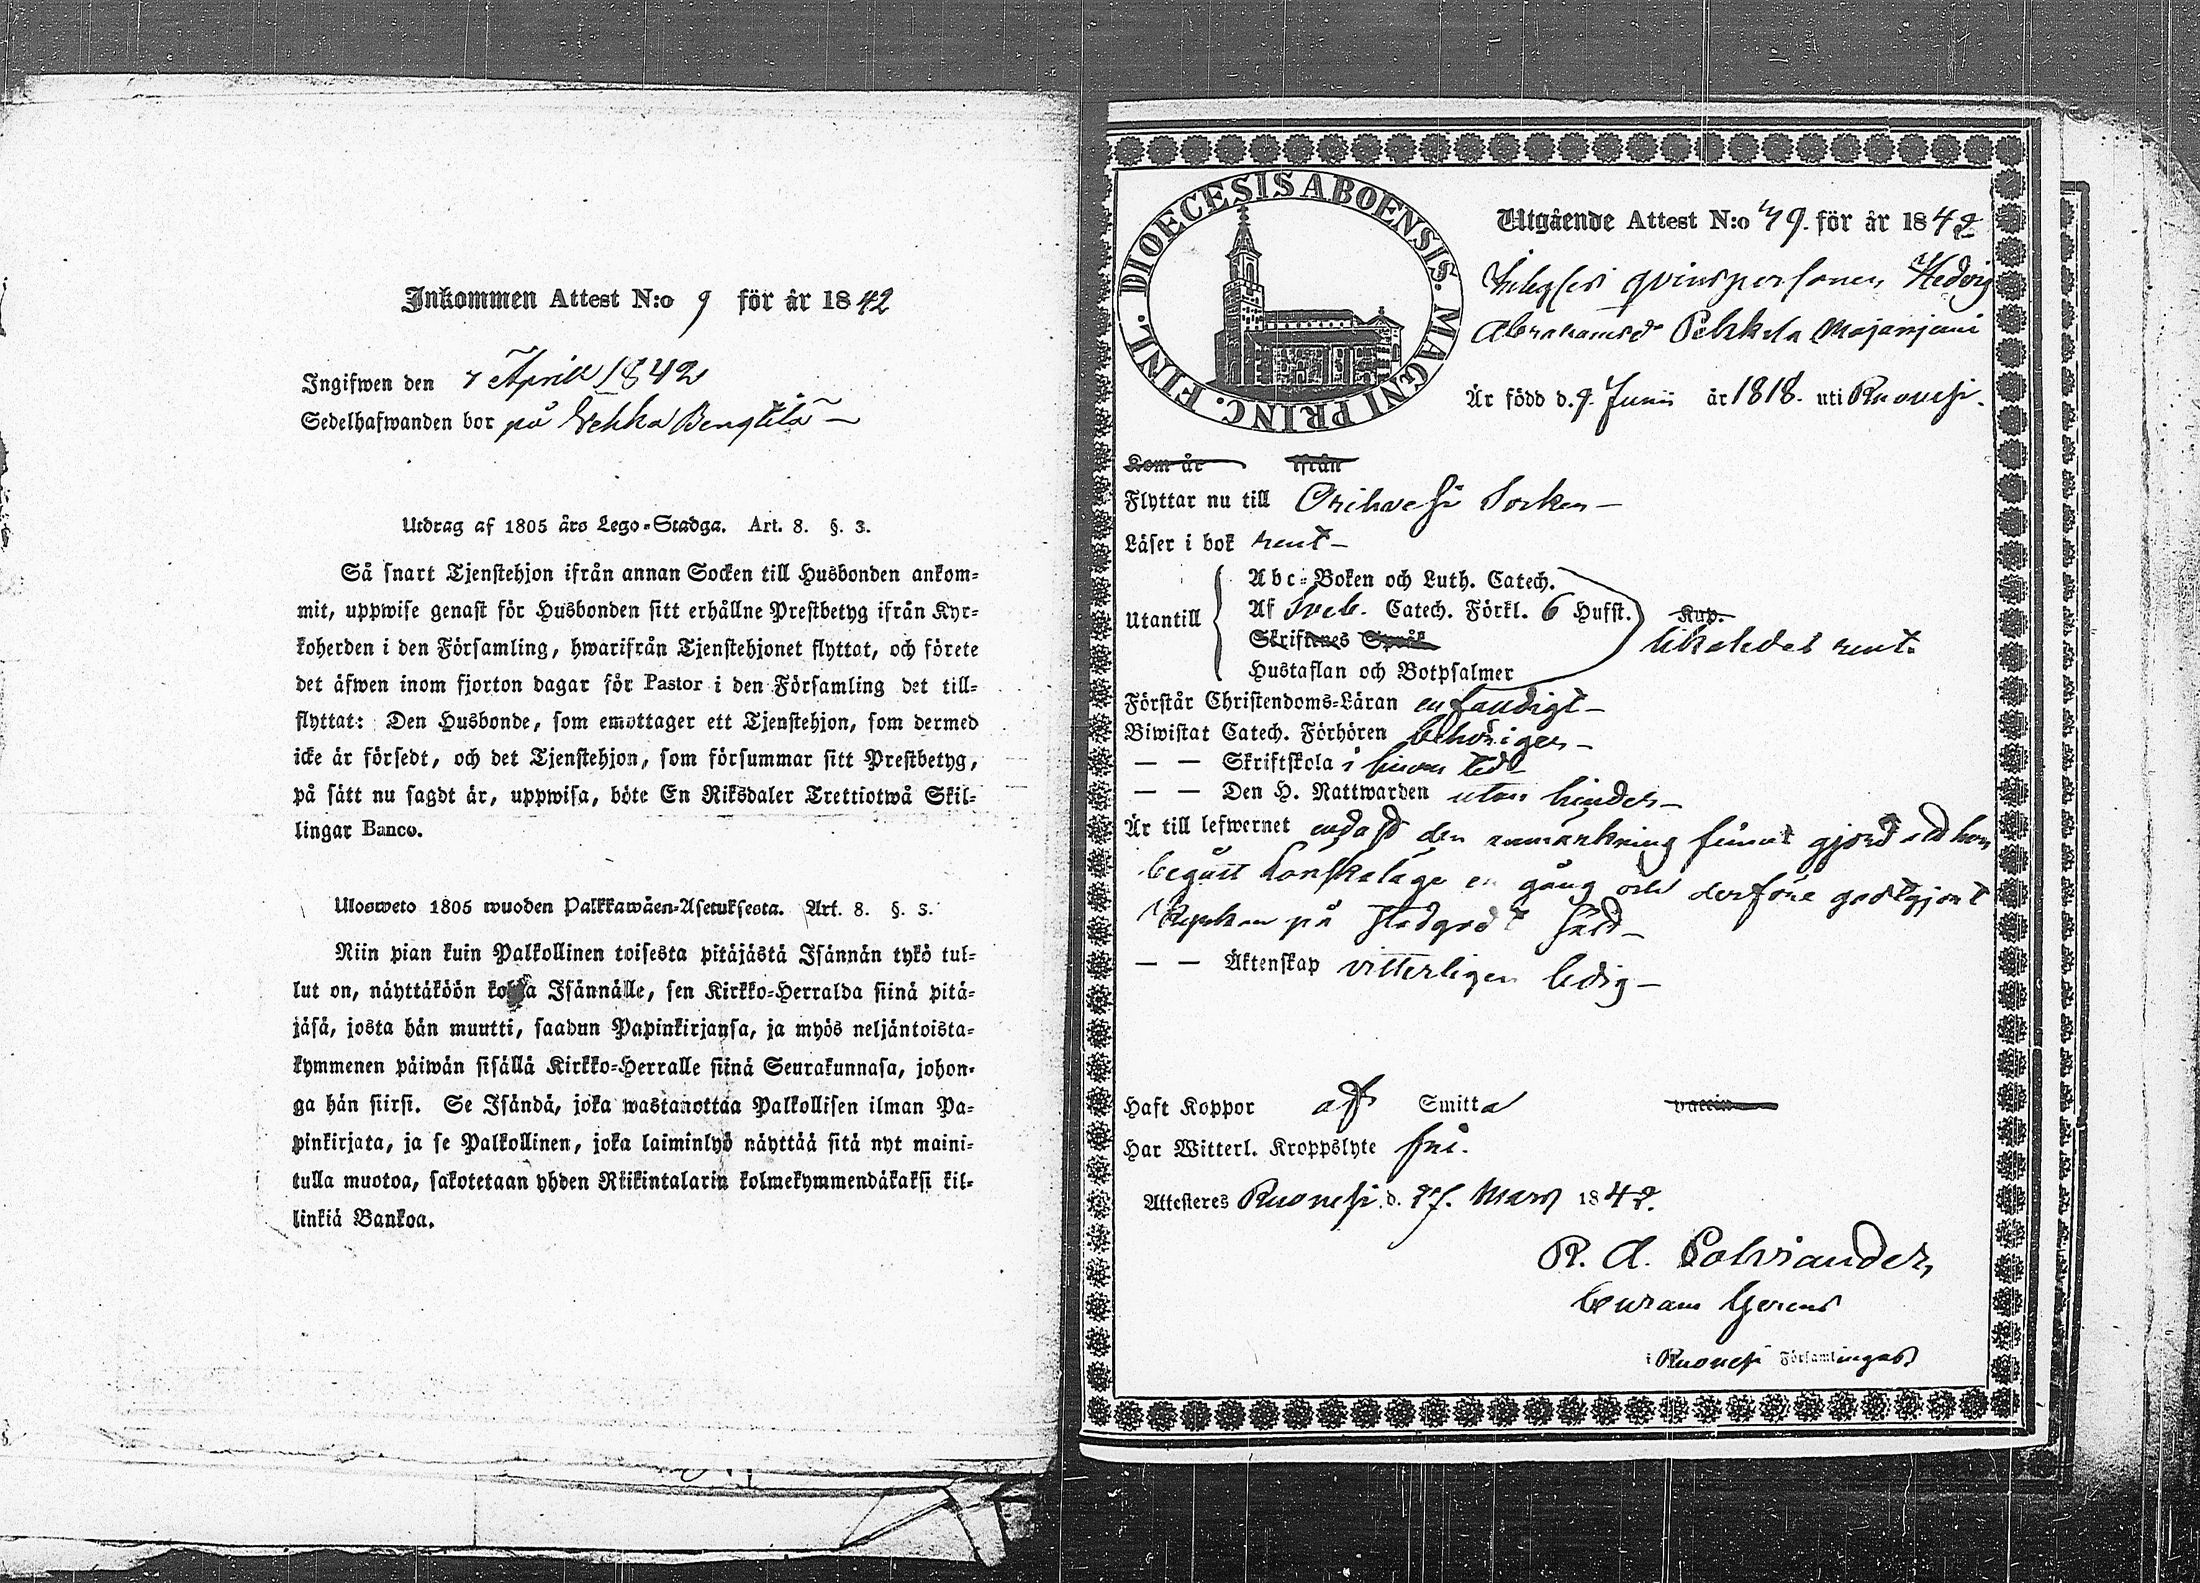 Inkommen Attest N:o 9 för år 1842
Ingifwen den 7 April 1842
Sedelhafwanden bor på Wehka Bengtilä
Utdrag af 1805 års Lego-Stadga. Art. 8. §. 3.
Så snart Tjenstehjon ifrån annan Socken till Husbonden ankom-
mit, uppwise genast för Husbonden sitt erhållne Prestbetyg ifrån Kyr-
koherden i den Församling, hwarifrån Tjenstehjonet flyttat, och förete
det äfwen inom fjorton dagar för Pastor i den Församling det till-
flyttat: Den Husbonde, som emottager ett Tjenstehjon, som dermed
icke är försedt, och det Tjenstehjon, som försummar sitt Prestbetyg,
på sätt nu sagdt är, uppwisa, böte En Riksdaler Trettiotwå Skil-
lingar Banco.
Ulosweto 1805 wuoden Palkkawäen-Asetuksesta. Art. 8. §. 3.
Niin pian kuin Palkollinen toisesta pitäjästä Isännän tykö tul-
lut on, näyttäköön kohta Isännälle, sen Kirkko-Herralda siinä pitä-
jäsä, josta hän muutti, saadun Papinkirjansa, ja myös neljäntoista-
kymmenen päiwän sisällä Kirkko-Herralle siinä Seurakunnasa, johon-
ga hän siirsi. Se Isändä, joka wastanottaa Palkollisen ilman Pa-
pinkirjata, ja se Palkollinen, joka laiminlyö näyttää sitä nyt maini-
tulla muotoa, sakotetaan yhden Riikintalarin kolmekymmendäkaksi kil-
linkiä Bankoa.
DIOECESIS ABOENSIS. MAGNI PRINC. FINL.
Utgående Attest N:o 49. för år 1842
qvinspersonen Hedvig
Abrahamsd:r Pelkela Majaniemi
Är född d. 9. Junii år 1818. uti Ruovesi.
Kom år ifrån
Flyttar nu till Orihvesi Socken
Läser i bok rent
Utantill
Abc-Boken och Luth. Catech.
Af Sveb. Catech. Förkl. 6 Hufst. Kap.
Skriftenes Språk likaledes rent.
Hustaflan och Botpsalmer
Förstår Christendoms-Läran enfaldigt
Biwistat Catech. Förhören behörigen
— — Skriftskola i sinom tid
— — Den H. Nattwarden utan hinder
Är till lefwernet endast den anmärkning finnes gjord att hon
begått Lönskaläge en gång och derföre godtgjort
Kyrkan på stadgadt sätt
— — Äktenskap vitterligen ledig
Haft Koppor af Smitta vaccin
Har Witterl. Kroppslyte fri.
Attesteres Ruovesi d. 27. Mars 1842.
R. A. Polviander,
Curam Gerens
i Ruovesi Församlingar